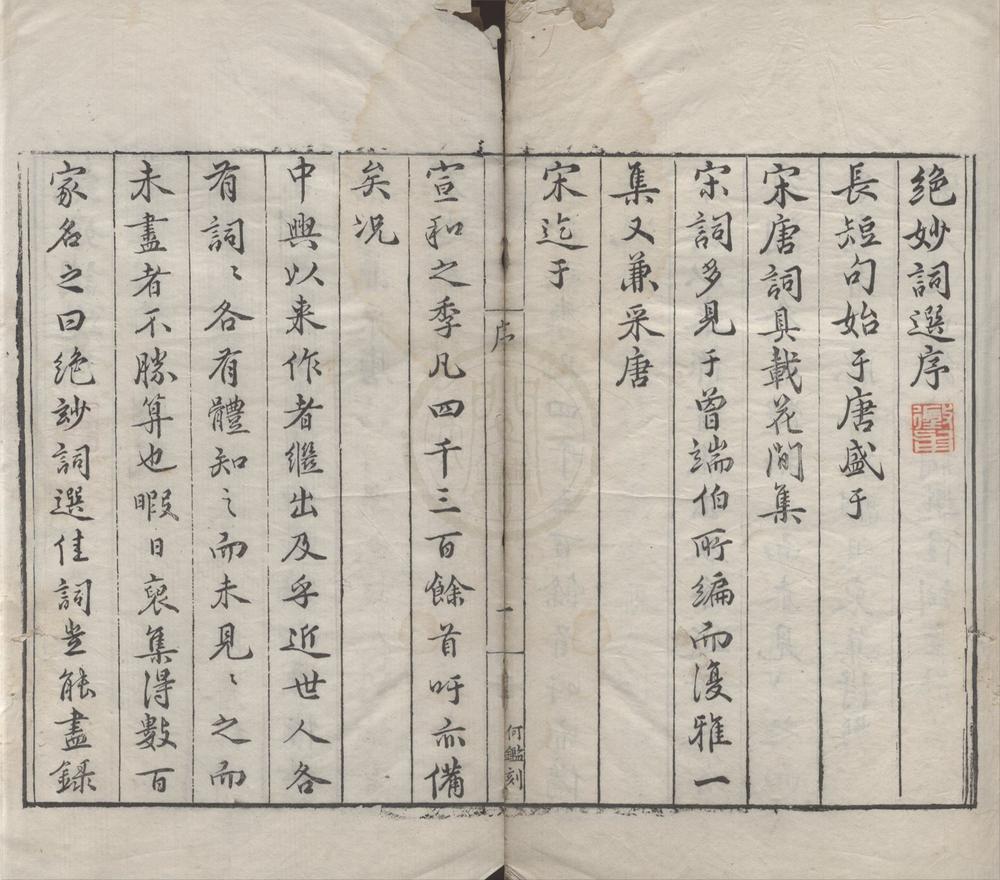 絶妙詞選序
長短句始于唐盛于
宋唐詞具載花間集
宋詞多見于曾端伯所編而復雅一
集又兼采唐
宋迄于
宣和之季凡四千三百餘首吁亦備
矣况
中興以来作者繼出及乎近世人各
有詞〻各有體知之而未見〻之而
未盡者不勝算也暇日裒集得數百
家名之曰絶妙詞選佳詞豈能盡録
序
一
何鑑刻